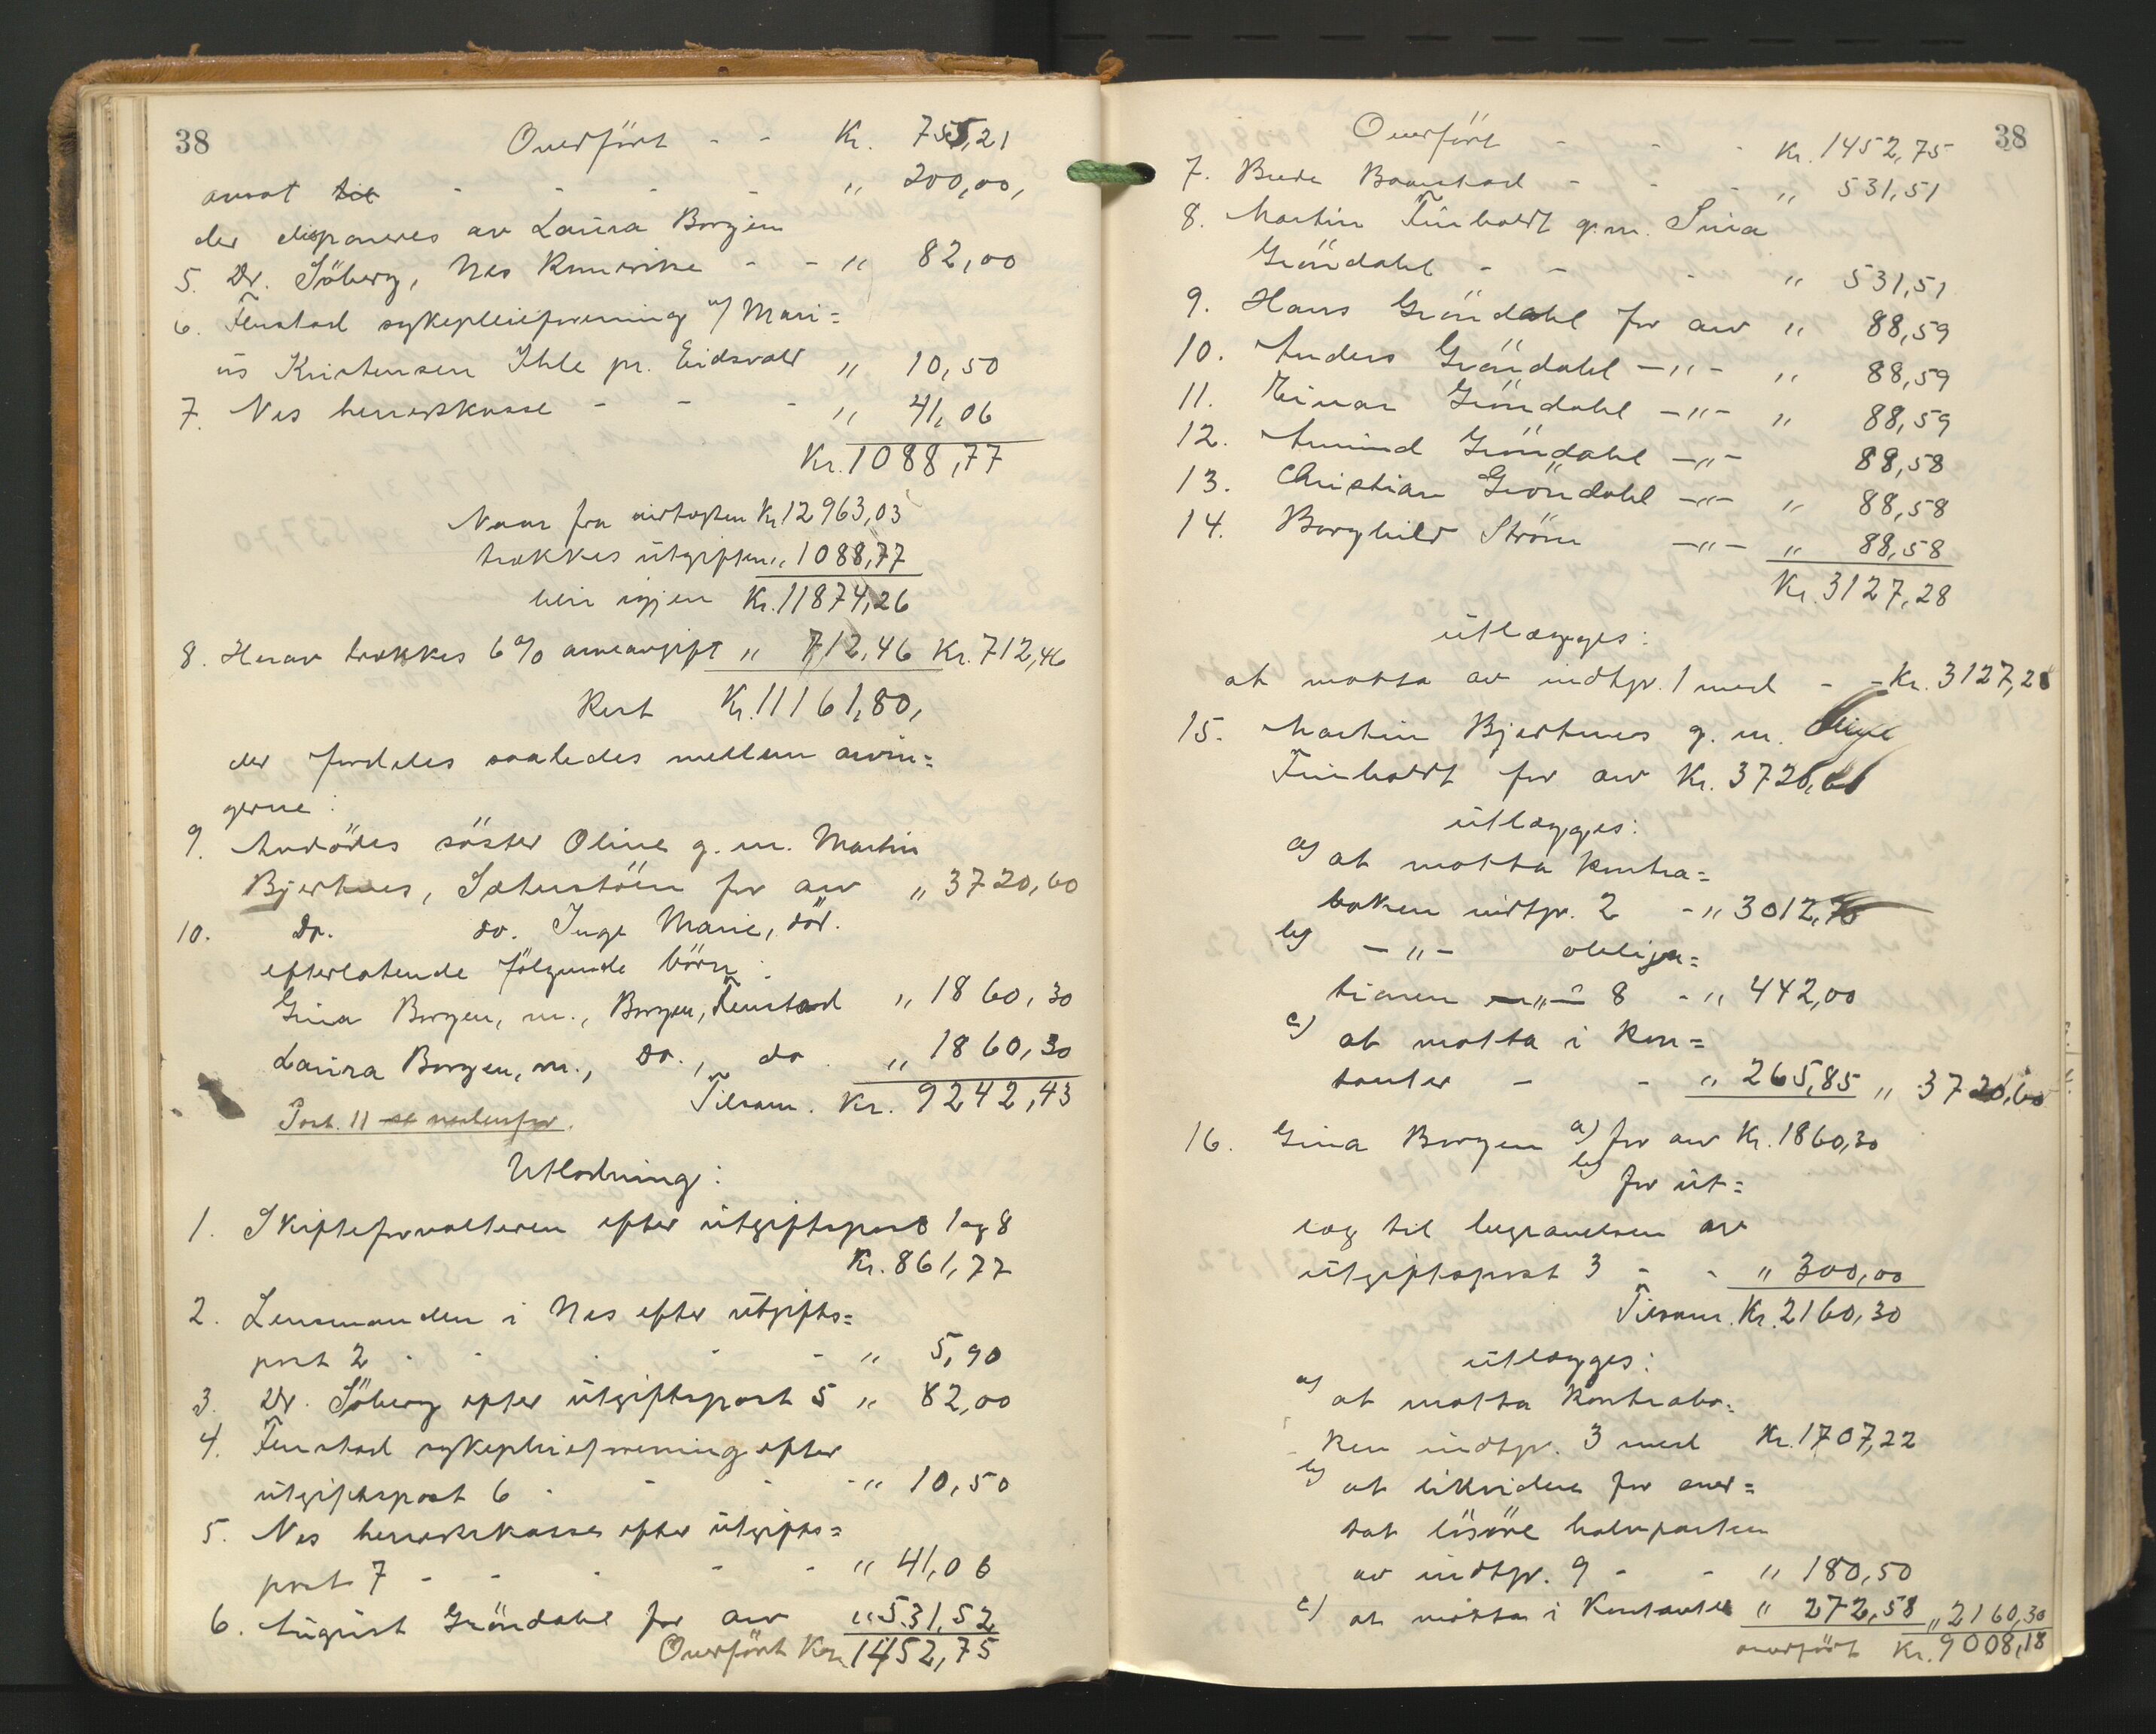 38
Overført - - Kr. 755,21
ansat til - - - - „ 200,00,
der disponeres av Laura Borgen
5. Dr. Söberg, Nes Romerike - - „ 82,00
6. Fenstad sykepleieforening v/ Mari=
us Kristensen Ihle pr. Eidsvold „ 10,50
7. Nes herredskasse - - - „ 41,06
Kr. 1088,77
Naar fra indtægten Kr. 12963,03
trækkes utgiften „ 1088,77
blir igjen Kr. 11874,26
8. Herav trækkes 6% arveavgift „ 712,46 Kr. 712,46
Rest Kr. 11161,80,
der fordeles saaledes mellem arvin=
gerne:
9. Avdödes söster Oline g. m. Martin
Bjertnes, Sæterstöen for arv „ 3720,60
10. Do. do. Inge Marie, död.
efterlatende følgende börn:
Gina Borgen, m., Borgen, Fenstad „ 1860,30
Laura Borgen, m., Do., do. „ 1860,30
Tilsam. Kr. 9242,43
Post. 11 se nedenfor.
Utlodning:
1. Skifteforvalteren efter utgiftspost 1 og 8
Kr. 861,77
2. Lensmanden i Nes efter utgifts=
post 2 - - - - „ 5,90
3. Dr. Söberg efter utgiftspost 5 „ 82,00
4. Fenstad sykepleieforening efter
utgiftspost 6 - - - „ 10,50
5. Nes herredskasse efter utgifts=
post 7 - - - - „ 41,06
6. August Gröndahl for arv „ 531,52
Overført Kr. 1452,75
38
Overført - - - Kr. 1452,75
7. - - - „ 531,51
8. Martin Finholdt g. m. Sina
Gröndahl - - - „ 531,51
9. Hans Gröndahl for arv „ 88,59
10. Anders Gröndahl -„- „ 88,59
11. Einar Gröndahl -„- „ 88,59
12. Amund Gröndahl -„- 88,58
13. Christian Gröndahl -„- „ 88,58
14. Borghild Ström -„- „ 88,58
Kr. 3127,28
utlægges:
at motta av indtp. 1 med - - Kr. 3127,28
15. Martin Bjertnes g. m. Oline
Finholdt for arv Kr. 3720,60
utlægges:
a) at motta kontra=
boken indtp. 2 - „ 3012,75
b) -„- obliga=
tionen -„- 8 - „ 442,00
c) at motta i kon=
tanter - - „ 265,85 „ 3720,60
16. Gina Borgen a) for arv Kr. 1860,30
b) for ut=
læg til begravelsen av
utgiftspost 3 - - „ 300,00
Tilsam. Kr. 2160,30
utlægges:
a) at motta kontrabo=
ken indtp. 3 med Kr. 1707,22
b) at likvidere for over=
tat lösöre halvparten
av indtp. 9 - - „ 180,50
c) at motta i kontanter „ 272,58 „ 2160,30
overført Kr. 9008,18